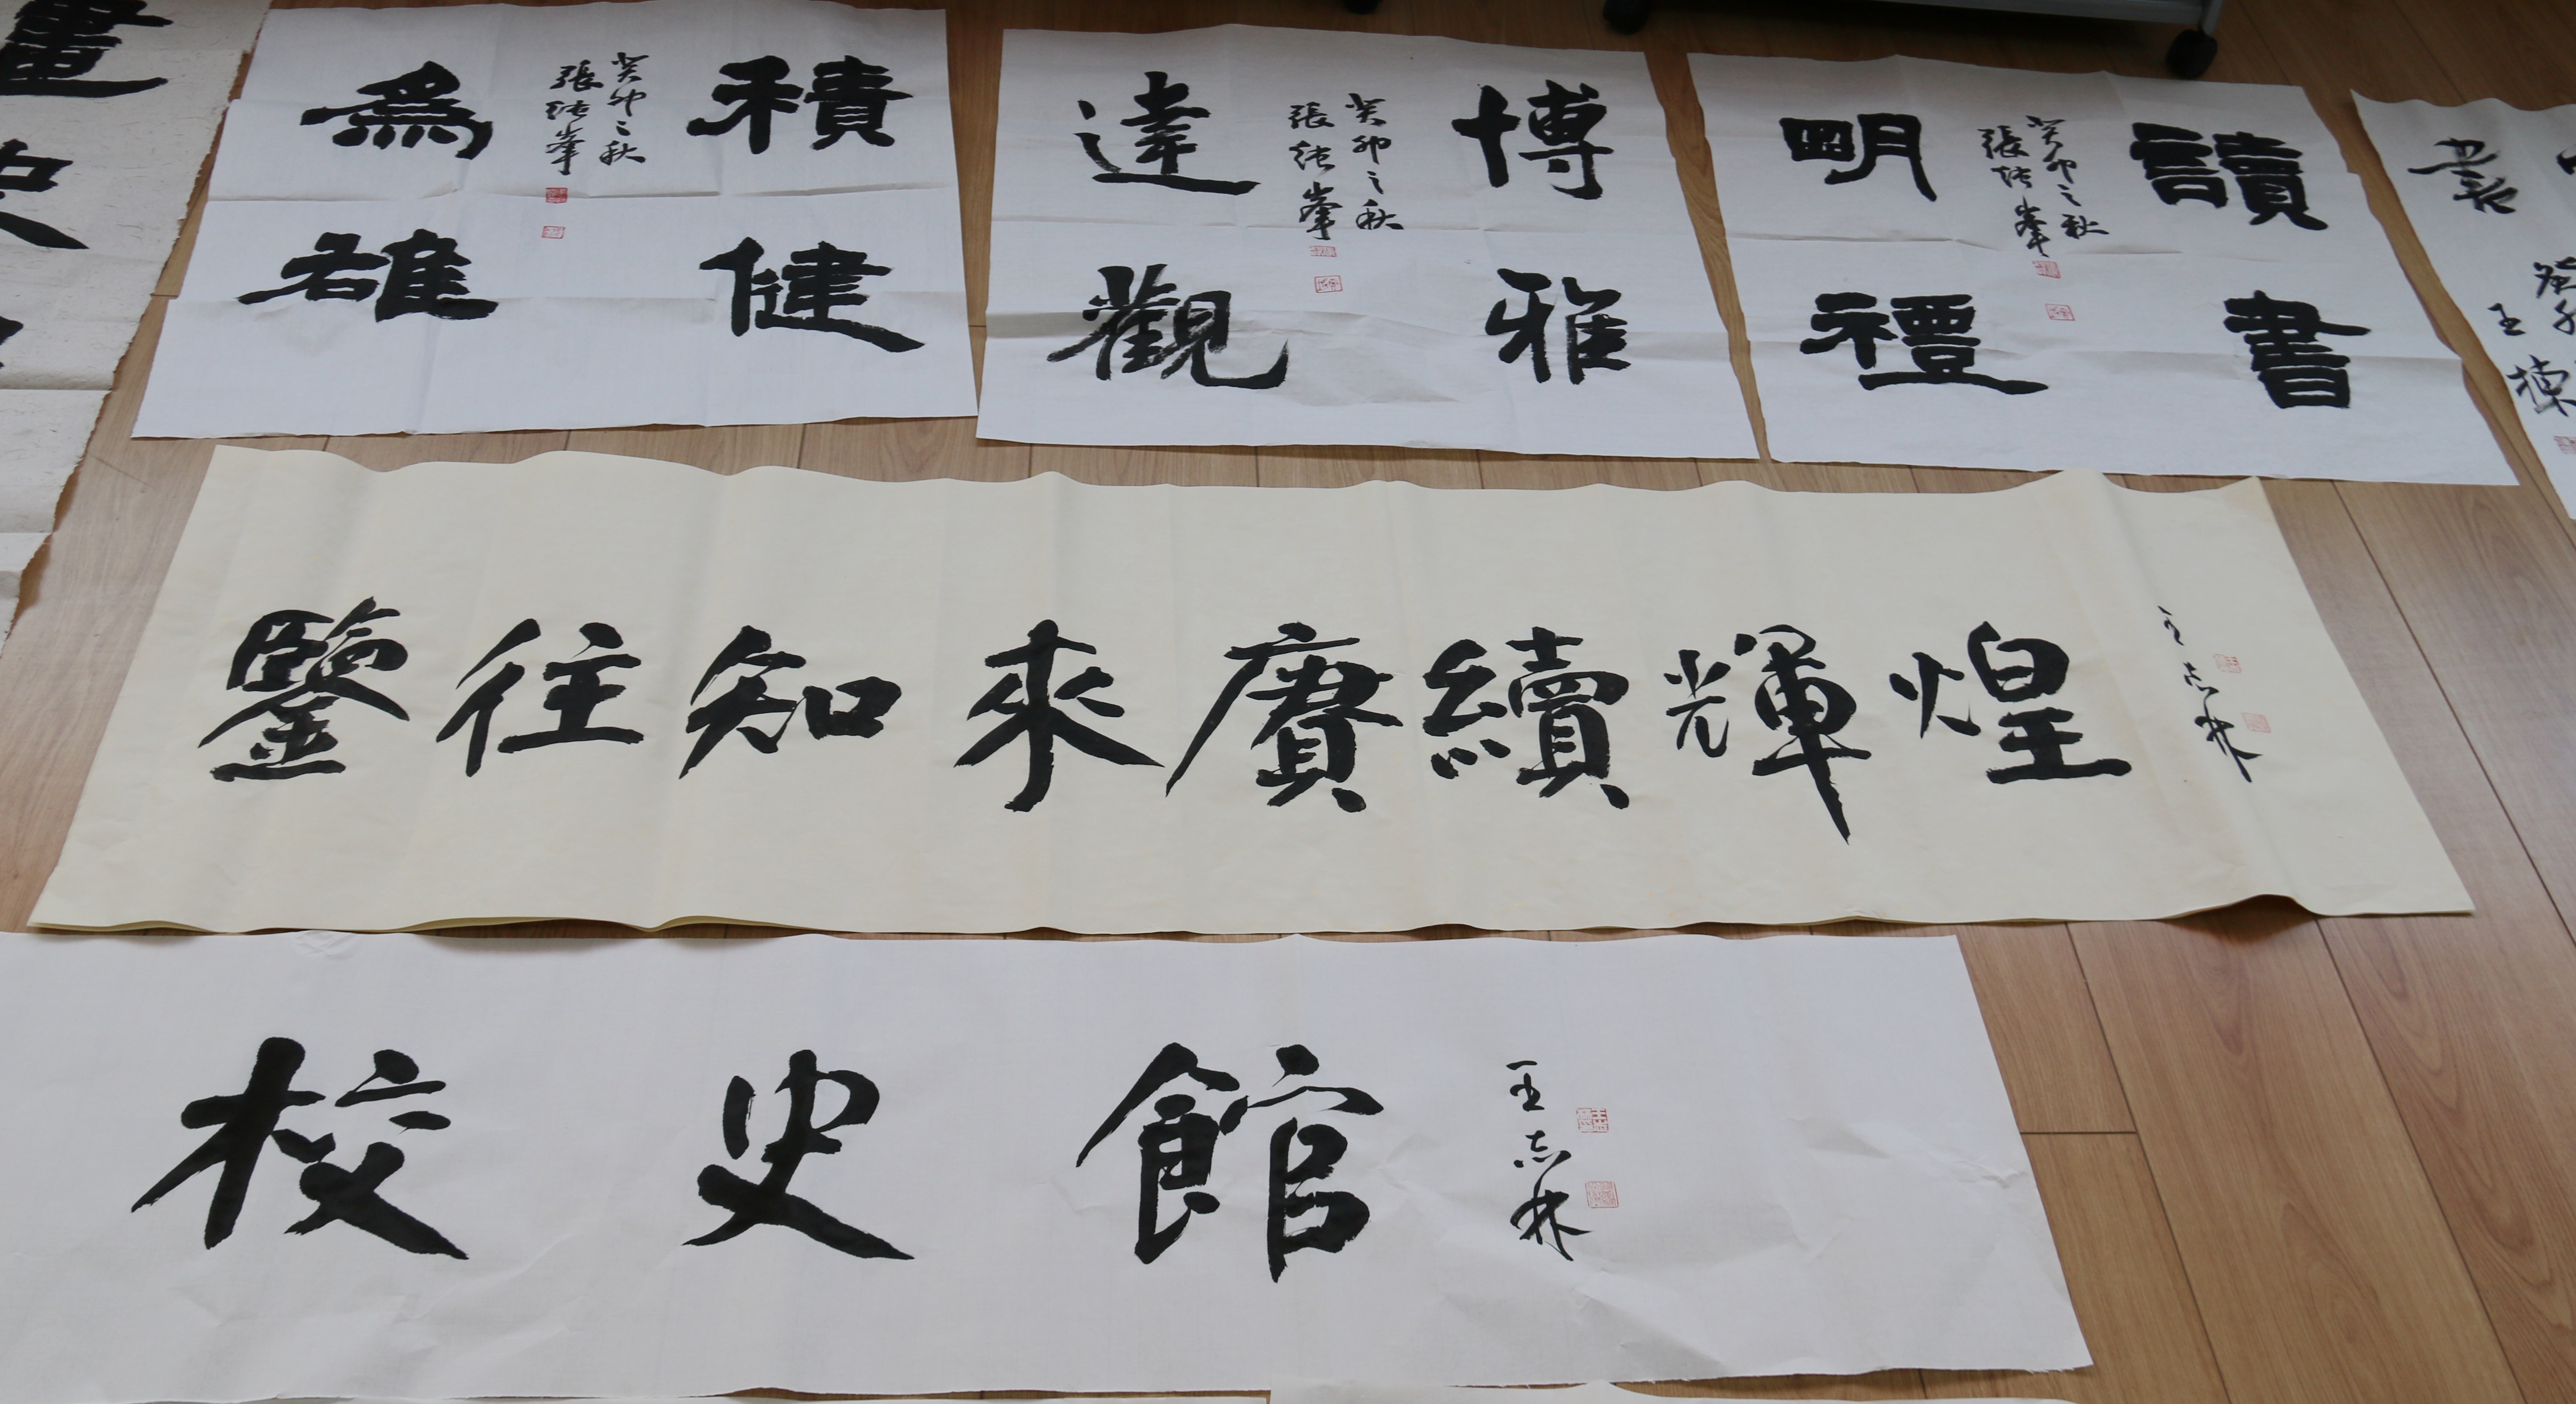 積健
為雄
癸卯之秋
張
峯
博雅
達觀
癸卯之秋
張
峯
讀書
明禮
癸卯之秋
張
峯
鑒往知來賡續輝煌
王志林
校史館
王志林
畫
史
書
王